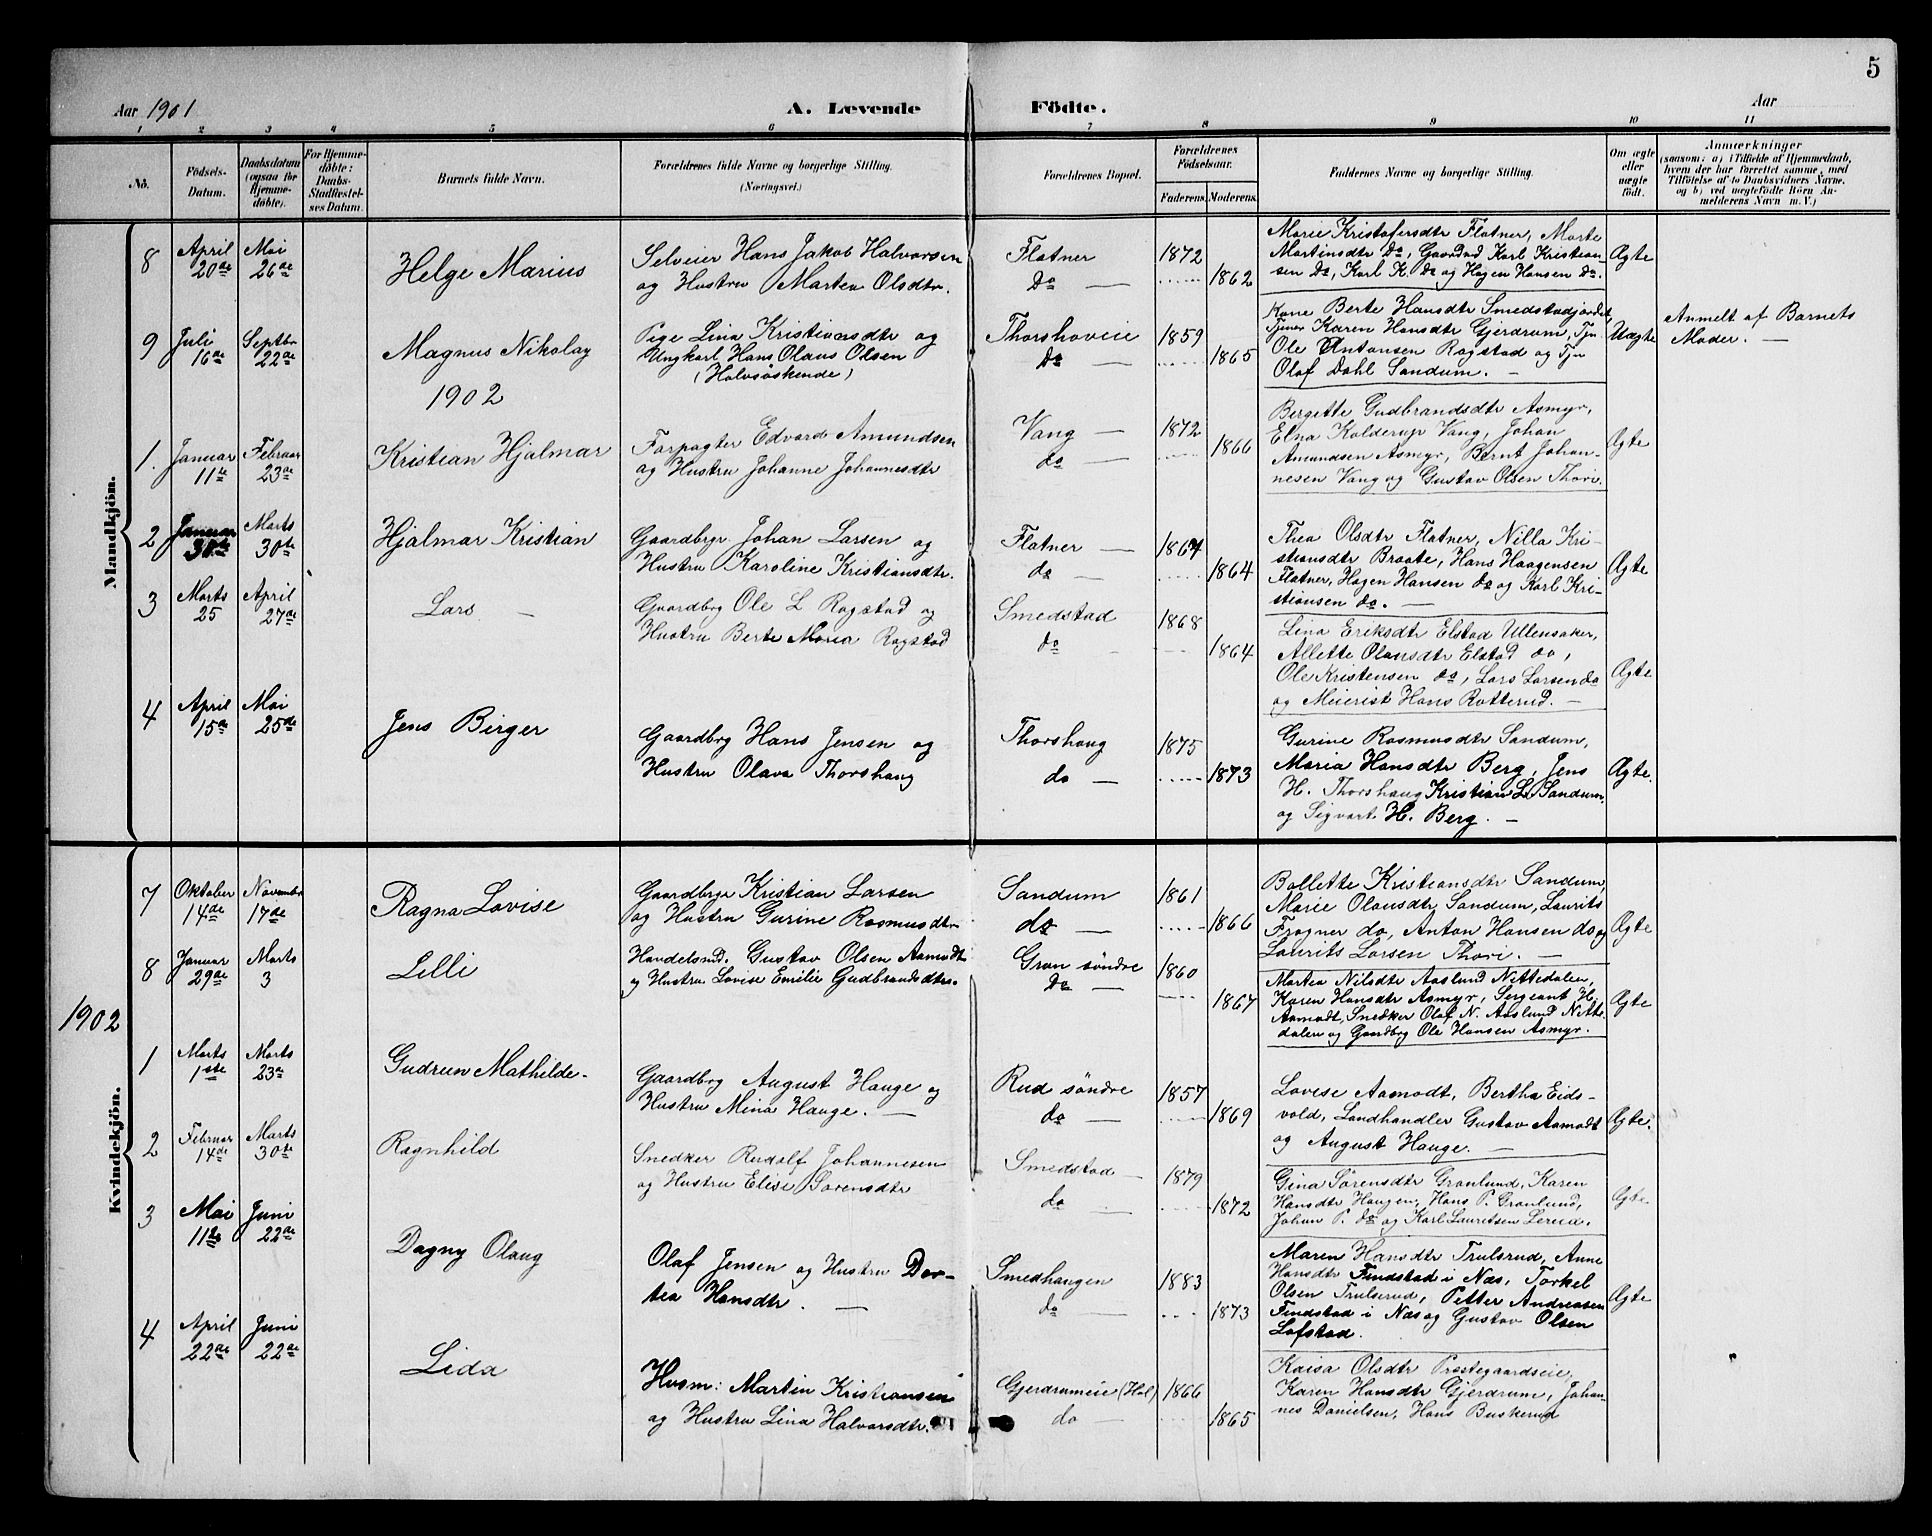 5
Aar 1901
A. Levende
Födte.
Aar
1 2 3 4 5 6 7 8 9 10 11
No.
Födsels-
Datum.
Daabsdatum
(ogsaa for
Hjemme-
döbte).
For Hjemme-
döbte:
Daabs-
Stadfæstel-
ses Datum.
Barnets fulde Navn.
Forældrenes fulde Navne og borgerlige Stilling.
(Næringsvei.)
Forældrenes Bopæl.
Forældrenes
Födselsaar.
Faderens.
Moderens.
Faddernes Navne og borgerlige Stilling.
Om ægte
eller
uægte
födt.
Anmærkninger
(saasom: a) i Tilfælde af Hjemmedaab,
hvem der har forrettet samme, med
Tilföielse af to Daabsvidners Navne,
og b) ved uægtefödte Börn An-
melderens Navn m. V.)
Mandkjön.
8
April
20de
Mai
26de
Helge Marius
Selveier Hans Jakob Halvorsen
og Hustru Marten Olsdtr.
Flatner
do
1872
1862
Marie Kristofersdtr Flatner, Marte
Martinsdtr do, Gaardud Karl Kristian-
sen do, Karl K. do og Hagen Hansen do.
Ægte
9
Juli
16de
Septbr
22de
Magnus Nikolay
Pige Lina Kristiansdtr og
Ungkarl Hans Olaus Olsen
(Halvsöskende)
Thorshoveie
do
1859
1865
Kone Berte Hansdtr Smedstadjordet,
Tjener Karen Hansdtr Gjerdrum, Tjn
Ole Antonsen Rogstad og Tjn
Olaf Dahl Sandum. —
Uægte
Anmelt af Barnets
Moder. —
1902
1.
Januar
11te
Februar
23de
Kristian Hjalmar
Forpagter Edvard Amundsen
og Hustru Johanne Johannesdtr
Vang —
do —
1872
1866
Bergette Gudbrandsdtr Asmyr,
Elna Kolderup Vang, Johan
Amundsen Asmyr, Bernt Johan-
nesen Vang og Gustav Olsen Thori.
Ægte
2
Januar
30te
Marts
30te
Hjalmar Kristian
Gaardbrgr Johan Larsen og
Hustru Karoline Kristiansdtr.
Flatner —
do —
1867
1864
Thea Olsdtr Flatner, Nilla Kri-
stiansdtr Braate, Hans Haagensen
Flatner, Hagen Hansen do og Karl Kri-
stiansen do. —
Ægte
3
Marts
25
April
27de
Lars —
Gaardbrg Ole L Rogstad og
Hustru Berte Maria Rogstad
Smedstad
do
1868
1864
Lina Eriksdtr Elstad Ullensaker,
Allette Olausdtr Elstad do,
Ole Kristensen do, Lars Larsen do
og Meierist Hans Rotterud. —
Ægte
4
April
15de
Mai
25de
Jens Birger
Gaardbrg Hans Jensen og
Hustru Olava Thorshaug
Thorshaug
do —
1875
1873
Gurine Rasmusdtr Sandum,
Maria Hansdtr Berg, Jens
H. Thorshaug Kristian L. Sandum,
og Sigvart H. Berg. —
Ægte.
Kvindekjön.
7
Oktober
14de
Novembr
17de
Ragna Lovise
Gaardbrgr Kristian Larsen
og Hustru Gurine Rasmusdtr
Sandum
do
1861
1866
Bollette Kristiansdtr Sandum,
Marie Olausdtr Sandum, Laurits
Frogner do, Anton Hansen do og
Laurits Larsen Thori. —
Ægte
8
Januar
29de
Marts
3
Lilli
Handelsmd. Gustav Olsen Aamodt
og Hustru Lovise Emilie Gudbrandsdtr.
Gran söndre
do —
1860
1867
Martea Nilsdtr Aaslund Nittedalen,
Karen Hansdtr Asmyr, Sergeant H.
Aamodt, Snedker Olaf N. Aaslund Nitte-
dalen og Gaardbrg Ole Hansen Asmyr.
Ægte
1902
1
Marts
1ste
Marts
23de
Gudrun Mathilde.
Gaardbrg August Hauge og
Hustru Mina Hauge. —
Rud söndre
do —
1857
1869
Lovise Aamodt, Bertha Eids-
vold, Landhandler Gustav Aamodt
og August Hauge. —
Ægte.
2
Februar
14de
Marts
30te
Ragnhild
Snedker Rudolf Johannesen
og Hustru Elise Sörensdtr
Smedstad
do
1879
1872
Gina Sörensdtr Grönlund, Karen
Hansdtr Haugen, Hans P. Grönlund,
Johan P. do og Karl Lauritsen Lereid.
Ægte.
3
Mai
11te
Juni
22de
Dagny Olaug
Olaf Jensen og Hustru Dor-
tea Hansdtr. —
Smedhaugen
do —
1883
1873
Maren Hansdtr Trulsrud, Anne
Hansdtr Findstad i Næs, Torkel
Olsen Trulsrud, Petter Andreasen
Findstad i Næs og Gustav Olsen
Lofstad.
Ægte
4
April
22de
Juni
22de
Lida
Husm: Martin Kristiansen
og Hustru Lina Halvorsdtr.
Gjerdrumeie (Hol)
do —
1866
1865
Kaisa Olsdtr Prestegaardseie,
Karen Hansdtr Gjerdrum, Johan-
nes Danielsen, Hans Buskerud